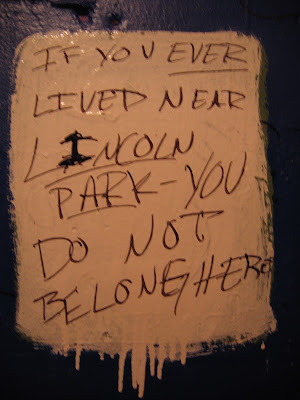 IF YOU EVER
LIVED NEAR
LINCOLN
PARK-YOU
DO NOT
BELONG HERE